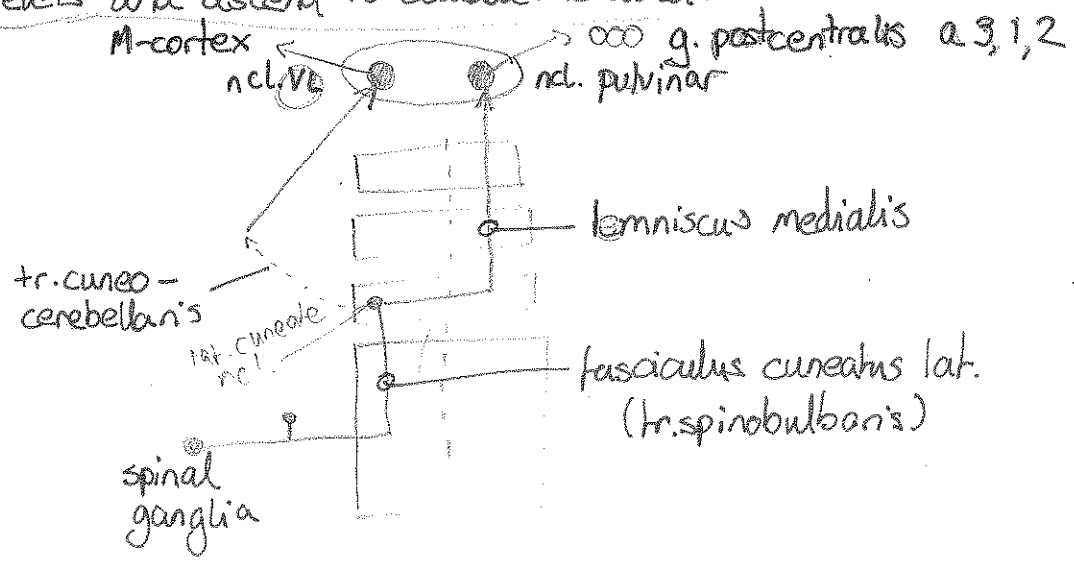 and ascend to
M-cortex
g. postcentralis a 3, 1, 2
ncl. VL
ncl. pulvinar
lemniscus medialis
tr. cuneo-
cerebellaris
lat. cuneate
ncl
fasciculus cuneatus lat.
(tr. spinobulbaris)
spinal
ganglia